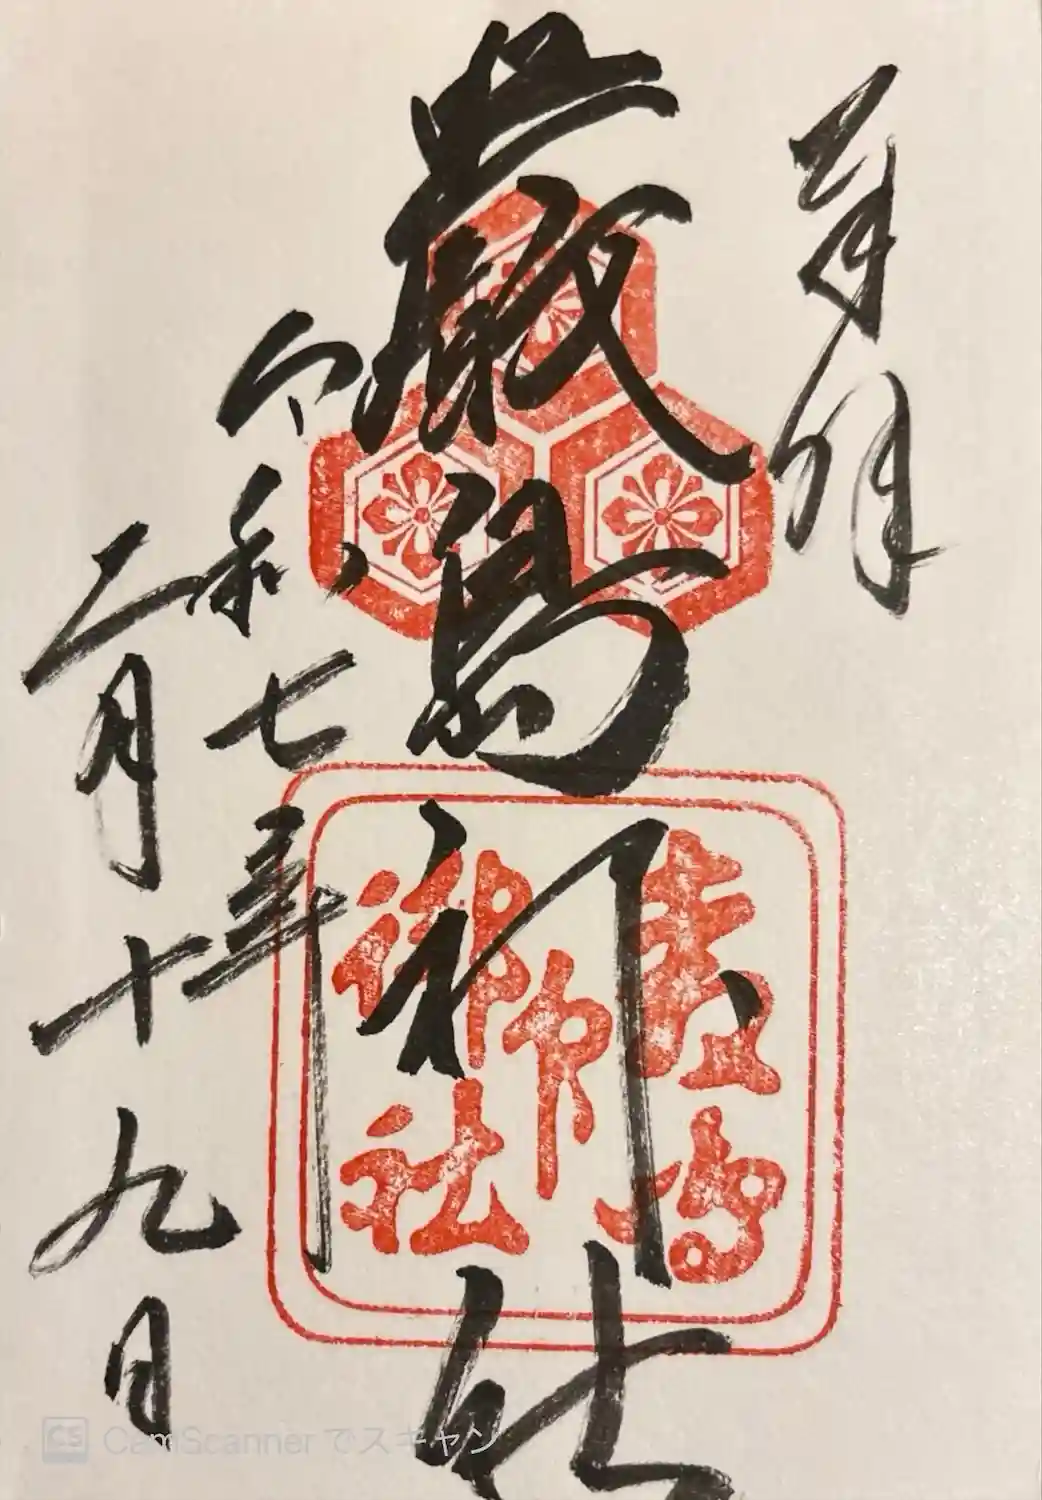 奉拝
厳島神社
令和七年
二月十九日
厳島
御社
CamScannerでスキャン